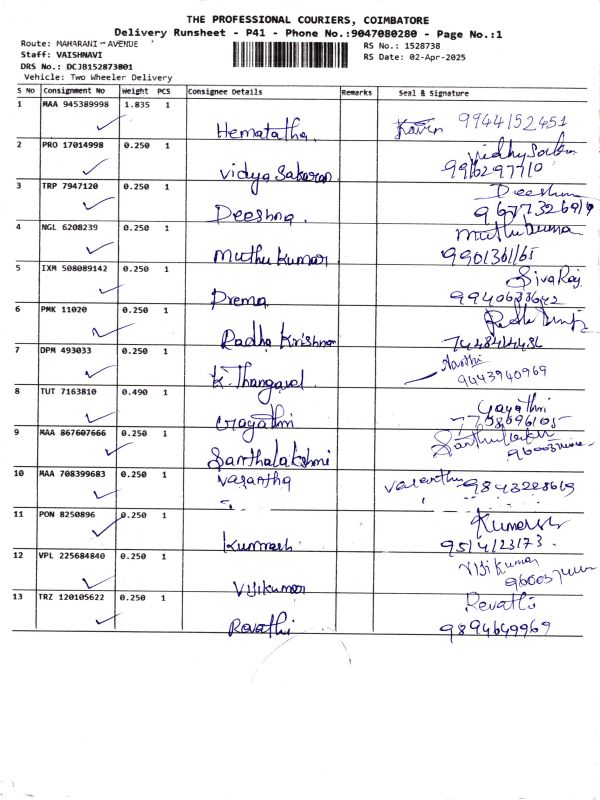 THE PROFESSIONAL COURIERS, COIMBATORE
Delivery Runsheet - P41 - Phone No.:9047080280 - Page No.:1
Route: MAHARANI - AVENUE
RS No.: 1528738
Staff: VAISHNAVI
RS Date: 02-Apr-2025
DRS No.: DCJB152873801
Vehicle: Two Wheeler Delivery
S No Consignment No Weight PCS Consignee Details Remarks Seal & Signature
1 MAA 945389998 1.835 1
Hematatha 9944152451
2 PRO 17014998 0.250 1
Vidya Sakaran
3 TRP 7947120 0.250 1
Deeshna
4 NGL 6208239 0.250 1
Muthu Kumar
5 IXM 508089142 0.250 1
Prema Sivaraj
6 PMK 11020 0.250 1
Radha Krishnan
7 DPM 493033 0.250 1
K. Thangavel 9443940969
8 TUT 7163810 0.490 1
Gayathri Gayathri
9 MAA 867607666 0.250 1
Santhalakshmi
10 MAA 708399683 0.250 1
Vasantha
11 PON 8250896 0.250 1
Kumaresh
12 VPL 225684840 0.250 1
Vijikumar Vijikumar
13 TRZ 120105622 0.250 1
Revathi Revathi
9894649969